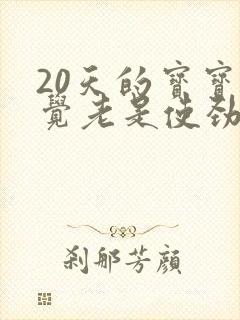 20天的寶寶
覺老是使勁
剎那芳顏